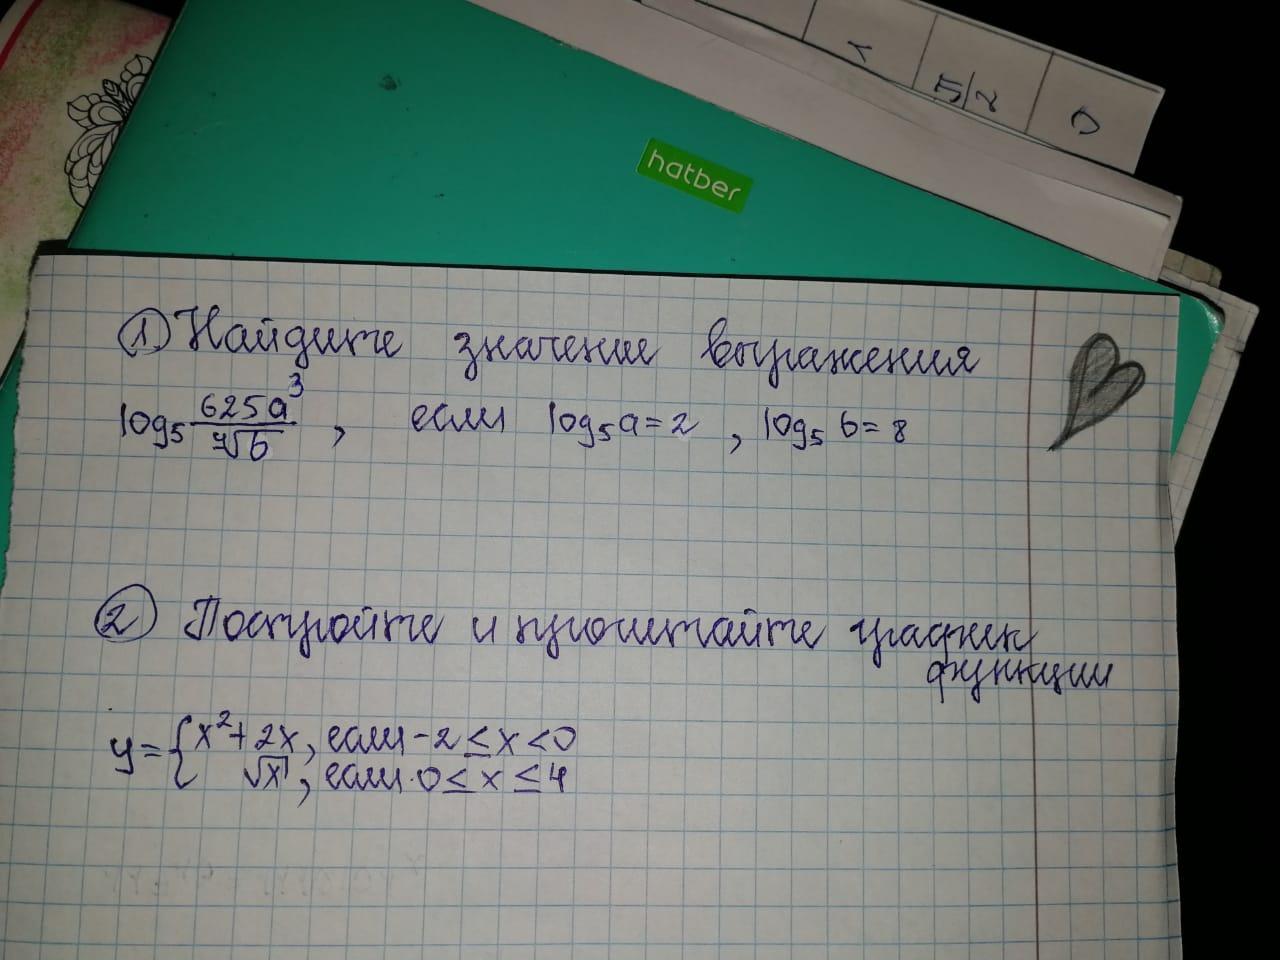 hatber
① Найдите значение выражения
log₅ 625a³/⁴√b , если log₅a=2 , log₅ b= 8
② Постройте и прочитайте график
функции
y= { x²+ 2x, если -2 ≤ x < 0
√x, если 0 ≤ x ≤ 4